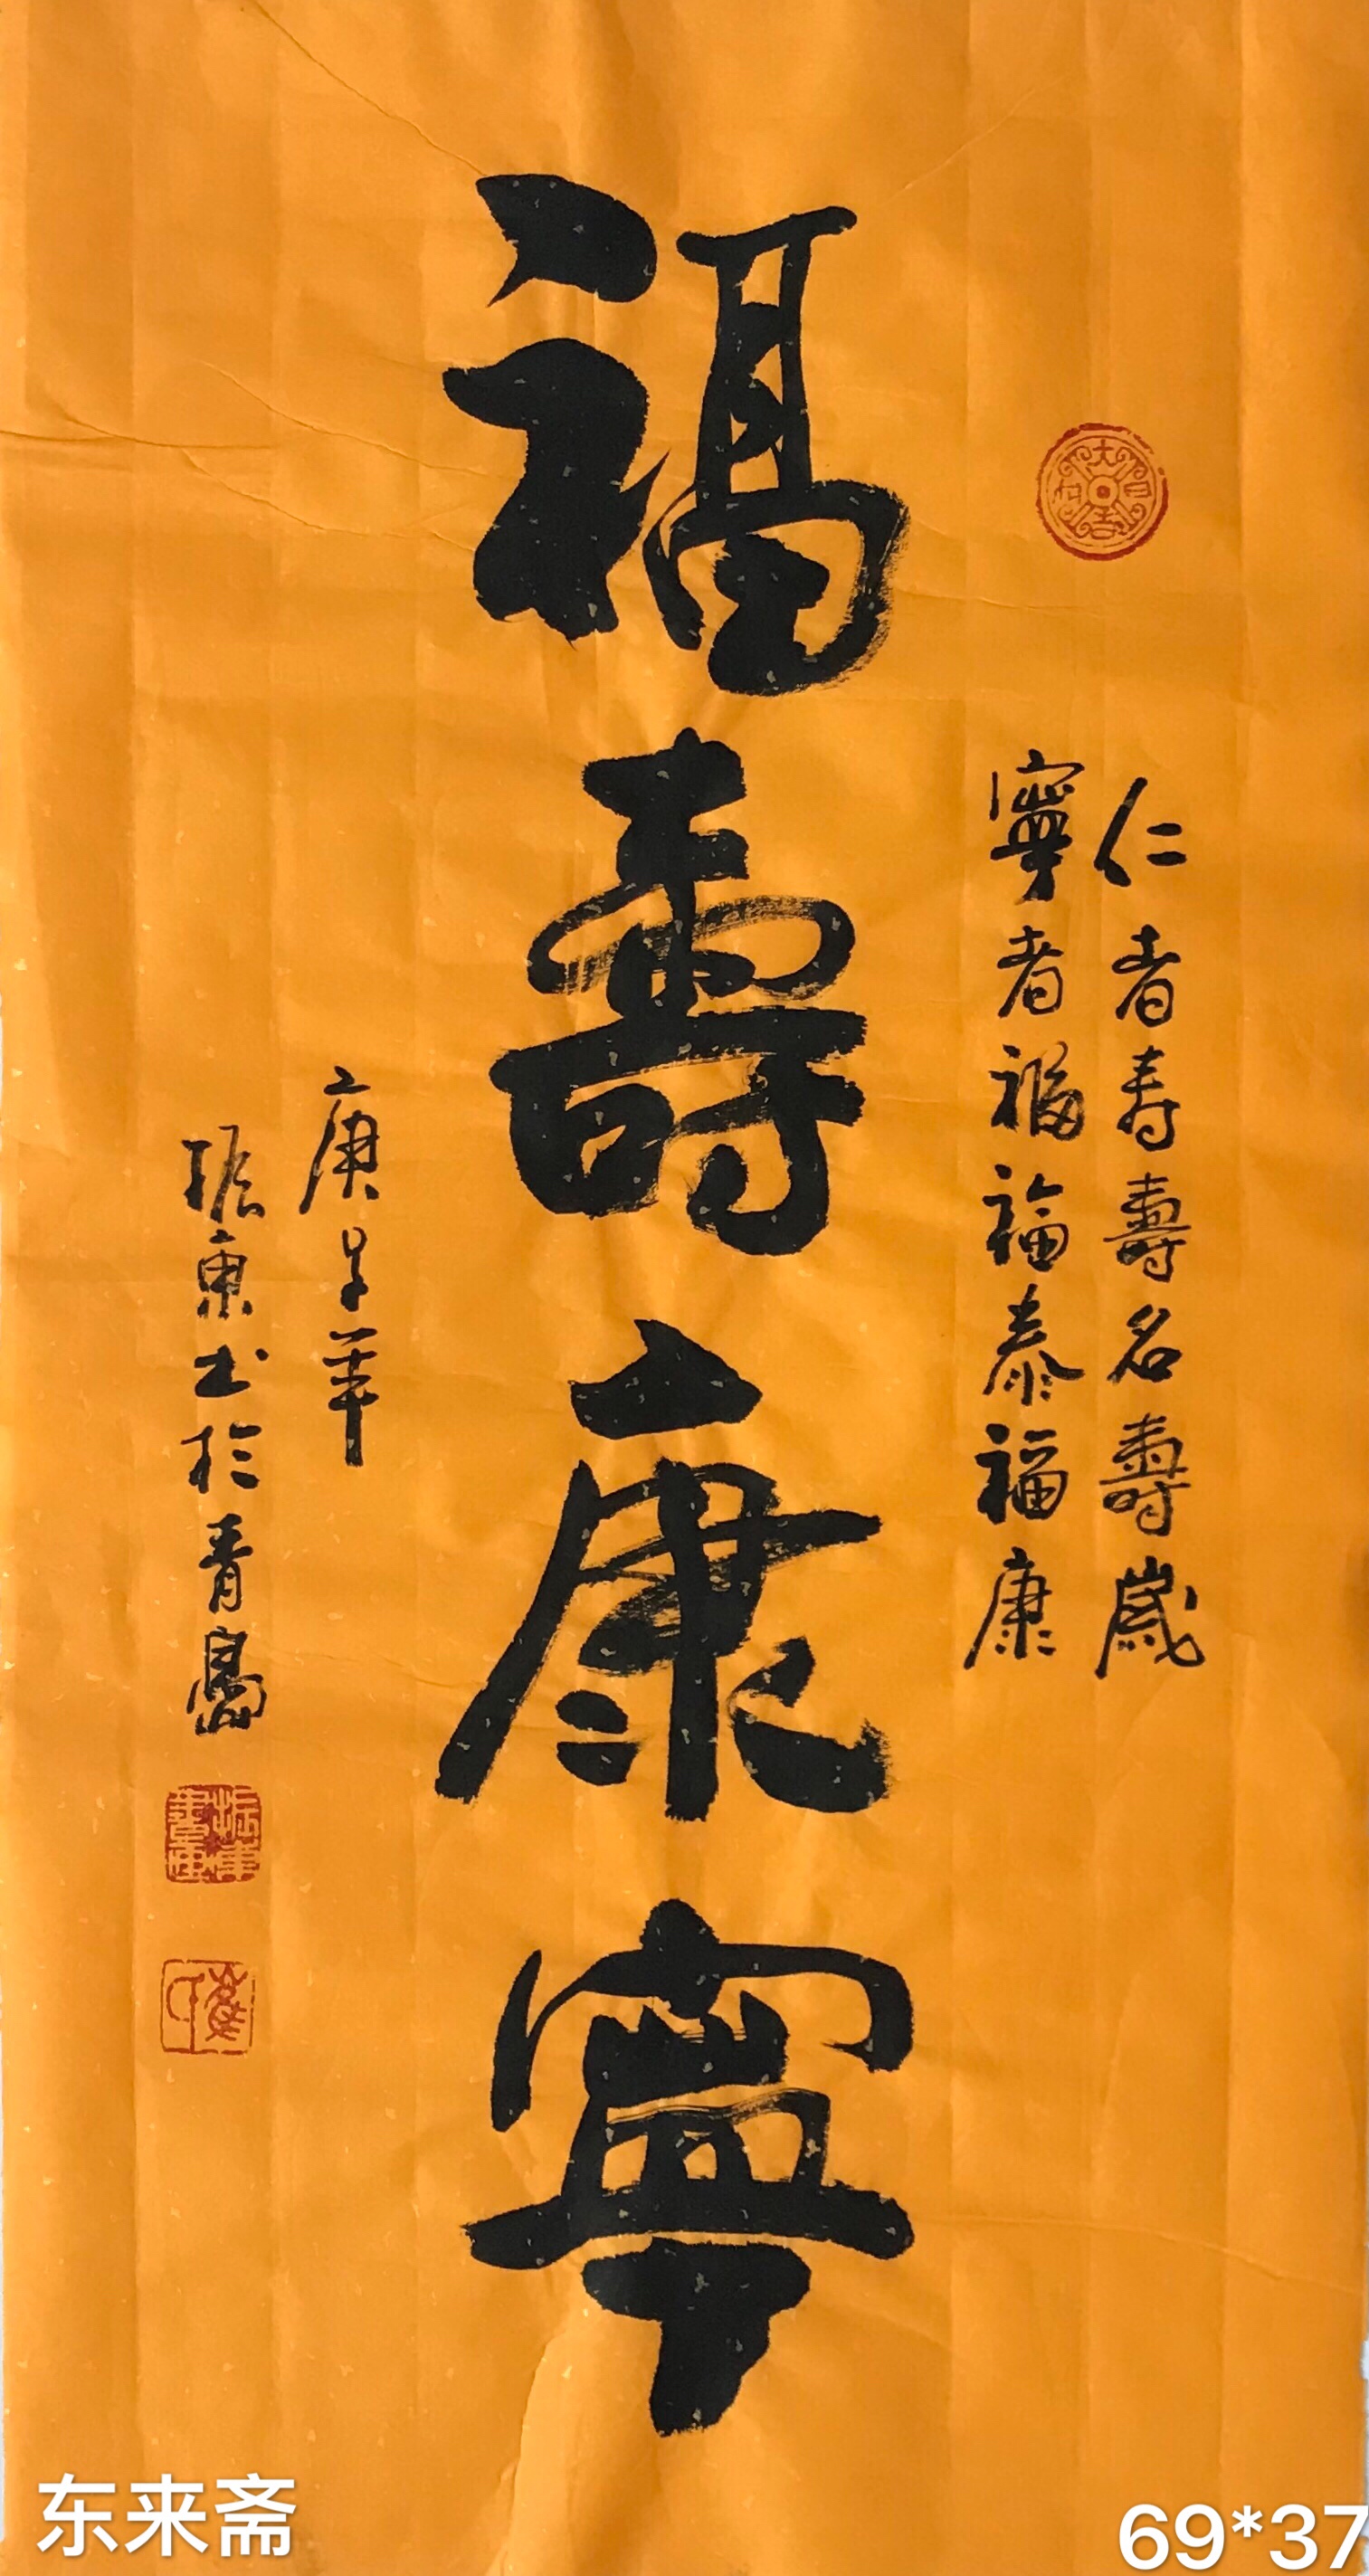 仁者壽壽壽名壽歲
寧者福福泰福康
福壽康寧
庚子年
振東书於青島
东来斋
69*37